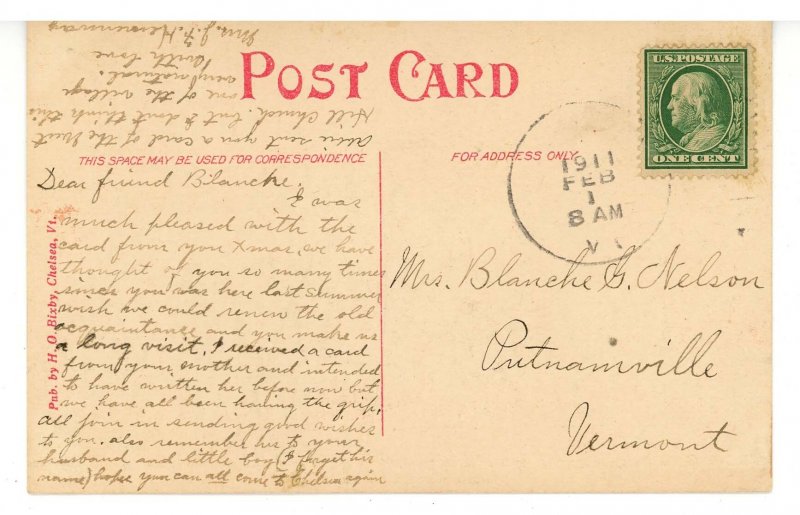 POST CARD
THIS SPACE MAY BE USED FOR CORRESPONDENCE
FOR ADDRESS ONLY
U.S. POSTAGE
ONE CENT
1911
FEB
1
8 AM
VT
Pub. by H. O. Bixby, Chelsea, Vt.
Dear friend Blanche,
I was
much pleased with the
card from you Xmas, we have
thought of you so many times
since you was here last summer
wish we could renew the old
acquaintance and you make us
a long visit. I received a card
from your mother and intended
to have written her before now but
we have all been having the grip,
all join in sending good wishes
to you. also remember us to your
husband and little boy (I forget his
name) hope you can all come to Chelsea again
sent you a card of the West
Hill Church, but I don't think this
one of the village
very natural.
with love
Mrs. J. F.
Mrs. Blanche G. Nelson
Putnamville
Vermont